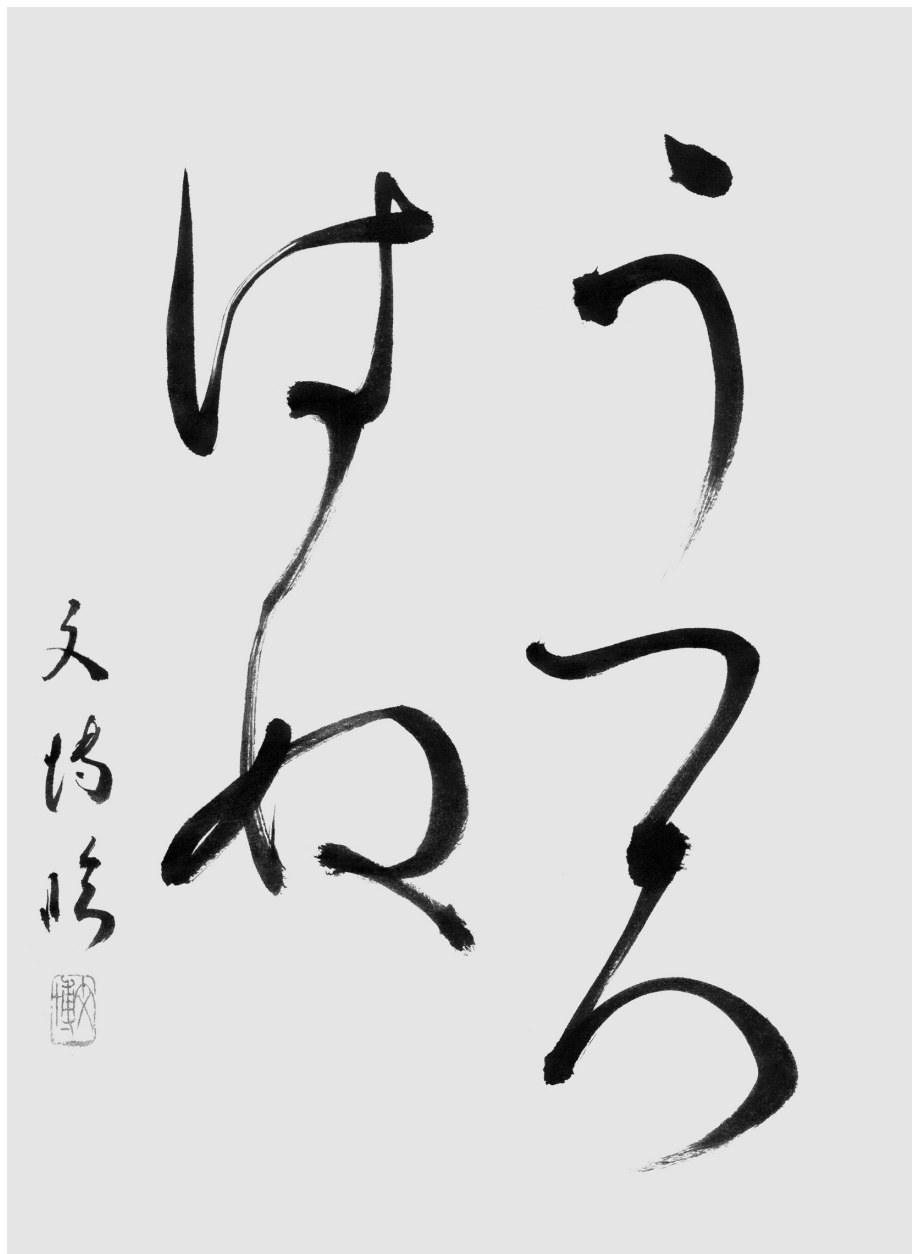 うつろ
はぬ
文博臨
文博